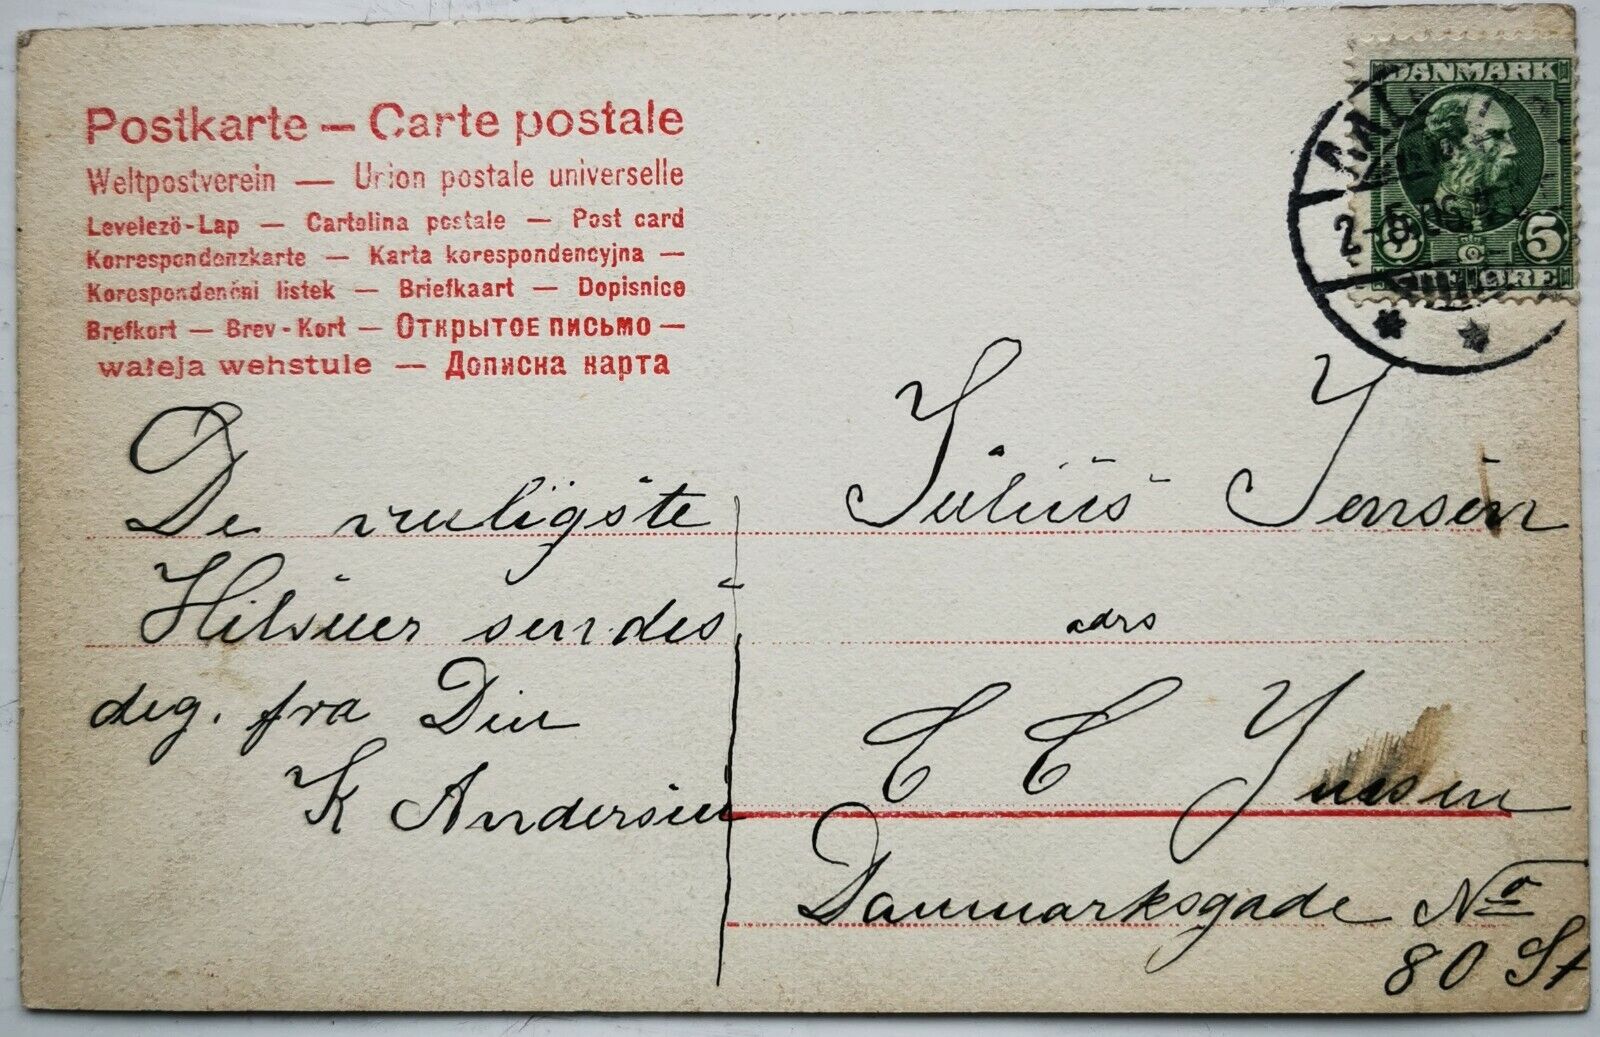 Postkarte – Carte postale
Weltpostverein — Union postale universelle
Levelezö-Lap — Cartolina postale — Post card
Korrespondenzkarte — Karta korespondencyjna —
Korespondenčni listek — Briefkaart — Dopisnice
Brefkort — Brev-Kort — Открытое письмо —
wateja wehstule — Дописна карта
DANMARK
2-5.06.
5 5
ØRE
De venligste
Hilsner sendes
dig. fra Din
K Andersen
Julius Jensen
adrs
C C Jensen
Danmarksgade No
80 St